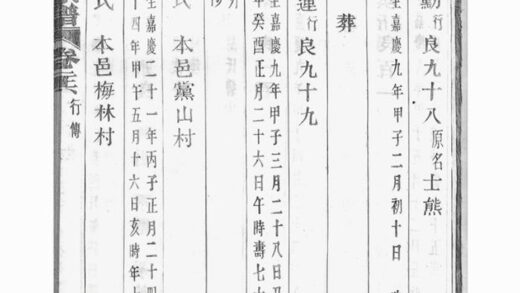 行 良九十八 原名士熊
生嘉慶九年甲子二月初十日
葬
蓮行 良九十九
生嘉慶九年甲子三月二十八日
年癸酉正月二十六日午時壽七
氏 本邑黨山村
生嘉慶二十一年丙子正月二十
十四年甲午五月十六日亥時年
氏 本邑梅林村
譜 卷六 行傳